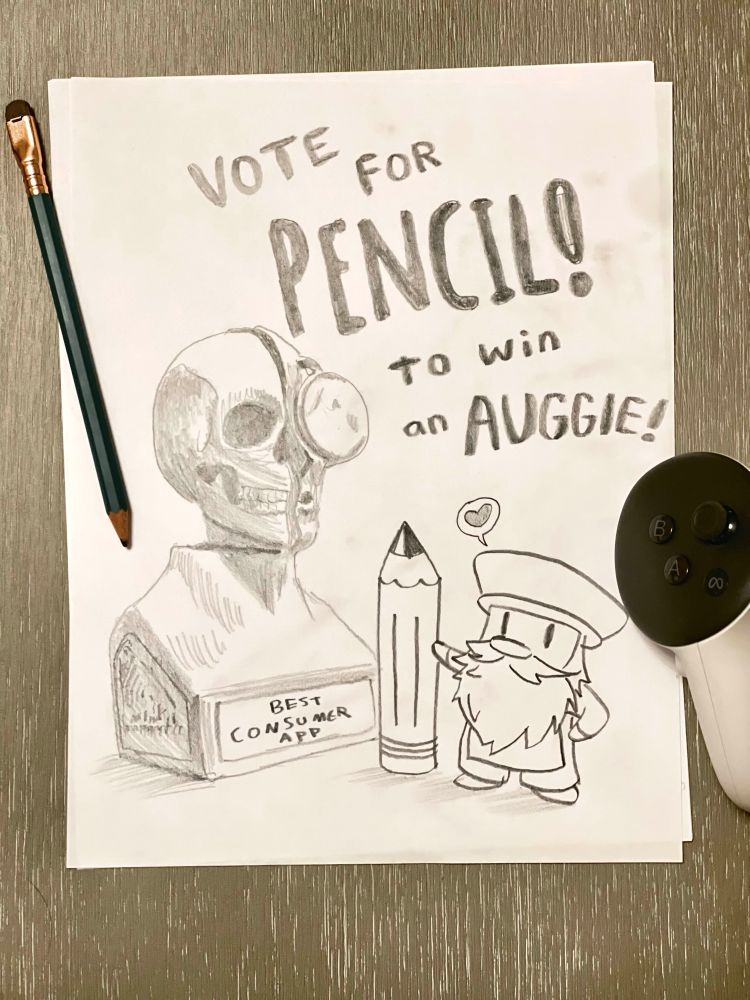 VOTE FOR
PENCIL!
to win
an AUGGIE!
BEST
CONSUMER
APP
B
A
∞